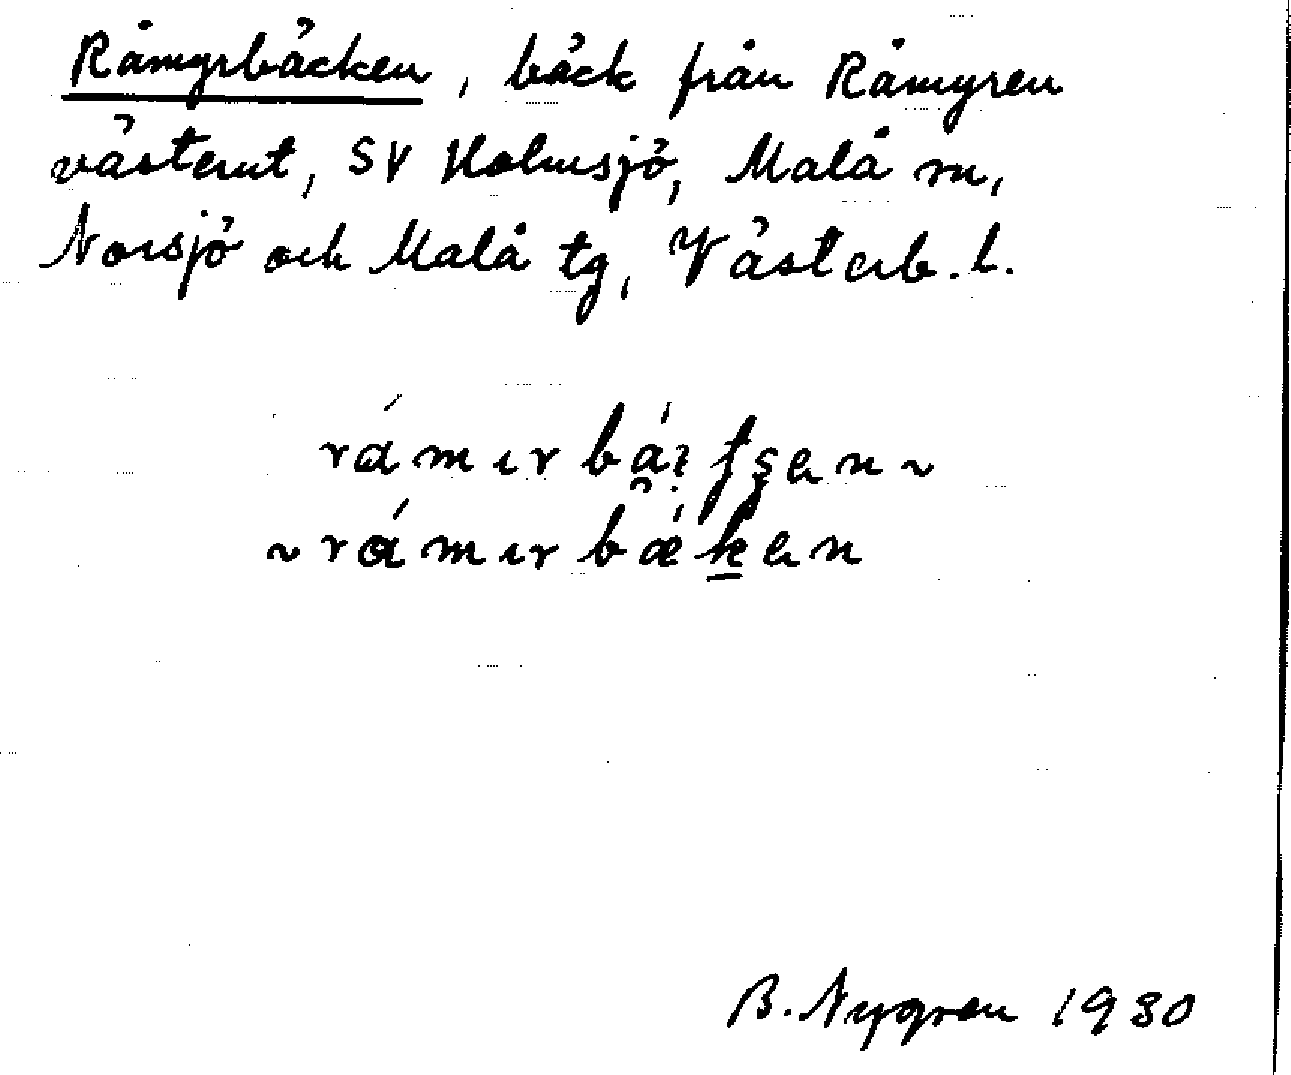 Råmyrbäcken, bäck från Råmyren
västerut, SV Holmsjö, Malå sn,
Norsjö och Malå tg, Västerb. l.
~rámırbǽken
B. Nygren 1930